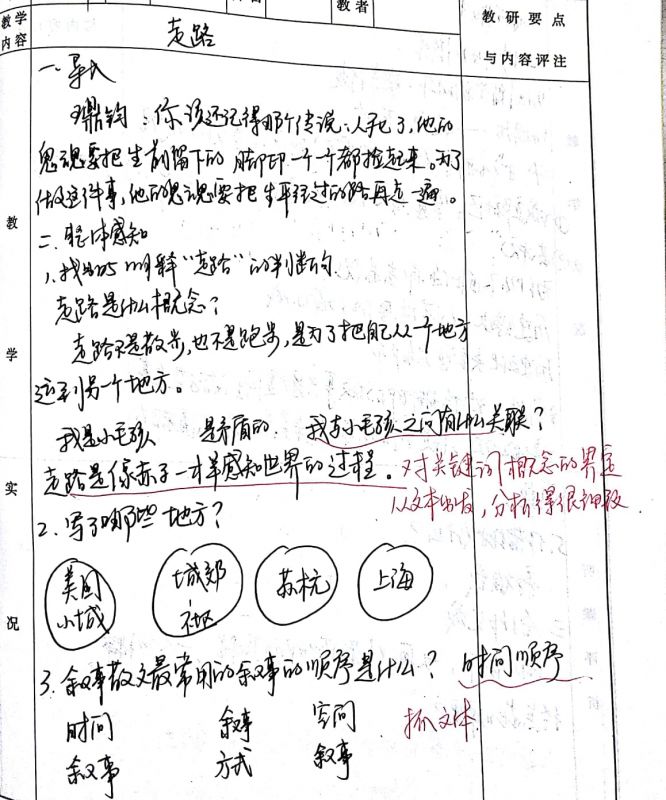 教学内容
走路
教者
教研要点
与内容评注
教学实况
一.导入
王鼎钧：你该还记得那个传说：人死了，他的
鬼魂要把生前留下的脚印一个一个都捡起来。为了
做这件事，他的鬼魂要把生平经过的路再走一遍。
二.整体感知
1.找出 解释“走路”的判断句
走路是什么概念？
走路不是散步，也不是跑步，是为了把自己从一个地方
送到另一个地方。
我是小毛孩 是矛盾的. 我与小毛孩之间有什么关联？
走路是像赤子一样感知世界的过程.
对关键词概念的界定
从文本出发，分析得很细致
2.写了哪些地方？
美国小城 城郊社区 苏杭 上海
3.叙事散文最常用的叙事的顺序是什么？ 时间顺序
时间 叙事 空间 抓文本
叙事 方式 叙事